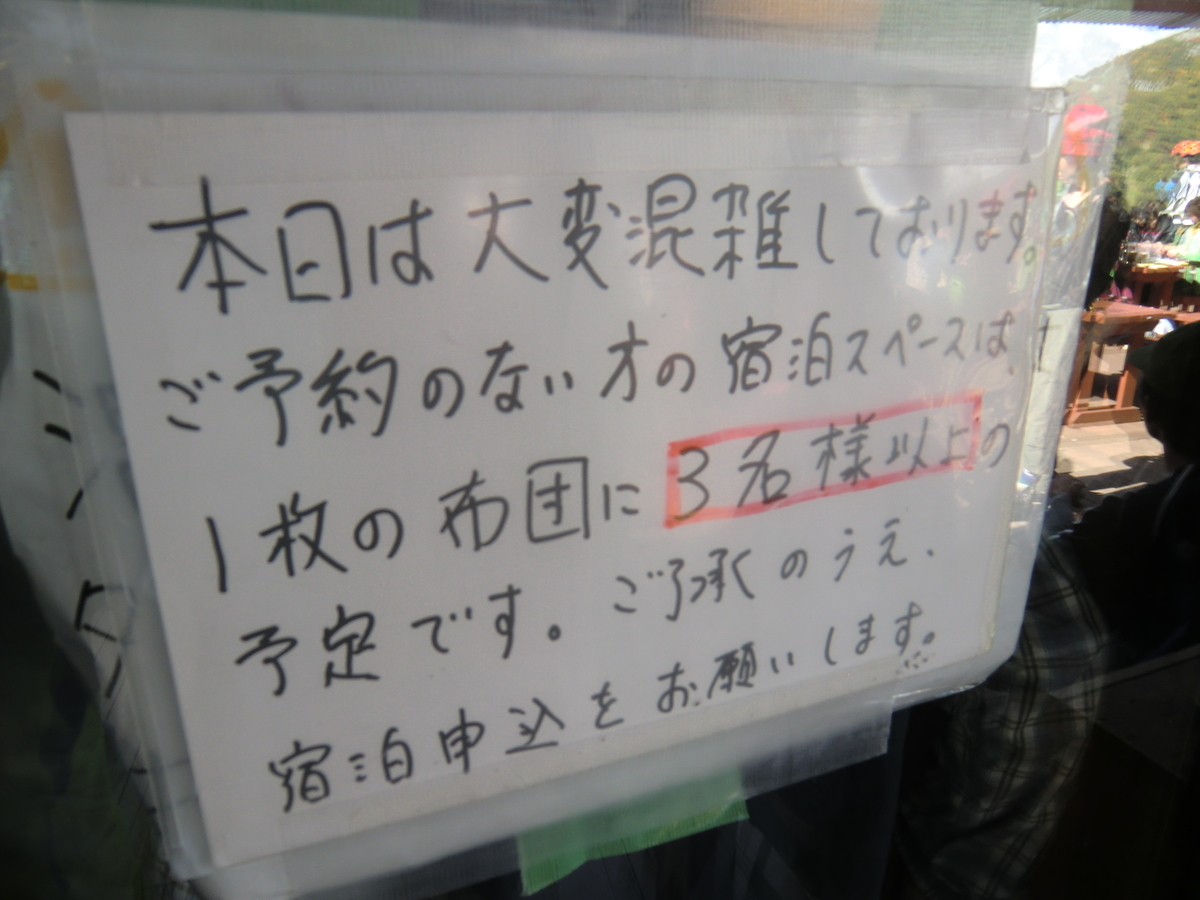 本日は大変混雑しております。
ご予約のない方の宿泊スペースは、
1枚の布団に3名様以上の
予定です。ご了承のうえ、
宿泊申込をお願いします。